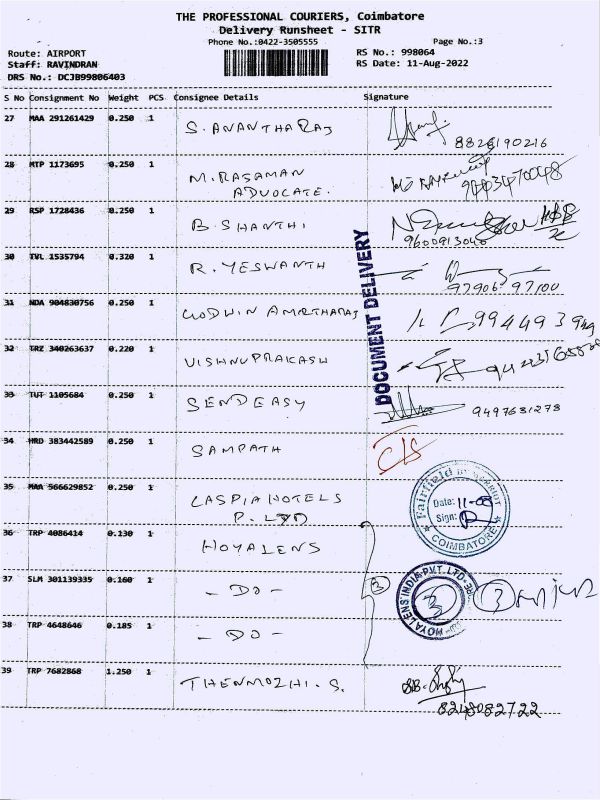 THE PROFESSIONAL COURIERS, Coimbatore
Delivery Runsheet - SITR
Phone No.:0422-3505555 Page No.:3
Route: AIRPORT RS No.: 998064
Staff: RAVINDRAN RS Date: 11-Aug-2022
DRS No.: DCJB99806403
S No Consignment No Weight PCS Consignee Details Signature
27 MAA 291261429 0.250 1 S. ANANTHA RAJ
8826190216
28 MTP 1173695 0.250 1 M. RASAMAN
ADVOCATE.
29 RSP 1728436 0.250 1 B. SHANTHI
9600913040
30 TVL 1535794 0.320 1 R. YESWANTH
97906 97100
31 NDA 904830756 0.250 1 GODWIN AMIRTHARAJ
32 TRZ 340263637 0.220 1 VISHNUPRAKASH
DOCUMENT DELIVERY
33 TUT 1105684 0.250 1 SENDEASY
9497631273
34 HRD 383442589 0.250 1 SAMPATH
35 MAA 566629852 0.250 1 CASPIA HOTELS
P. LTD
Fairfield BY MARRIOTT
Date: 11-8
Sign:
COIMBATORE
36 TRP 4086414 0.130 1 HOYALENS
37 SLM 301139335 0.160 1 - DO - 3
HOYA LENS INDIA PVT. LTD
3
38 TRP 4648646 0.185 1 - DO -
39 TRP 7682868 1.250 1 THENMOZHI. S.
8248082722